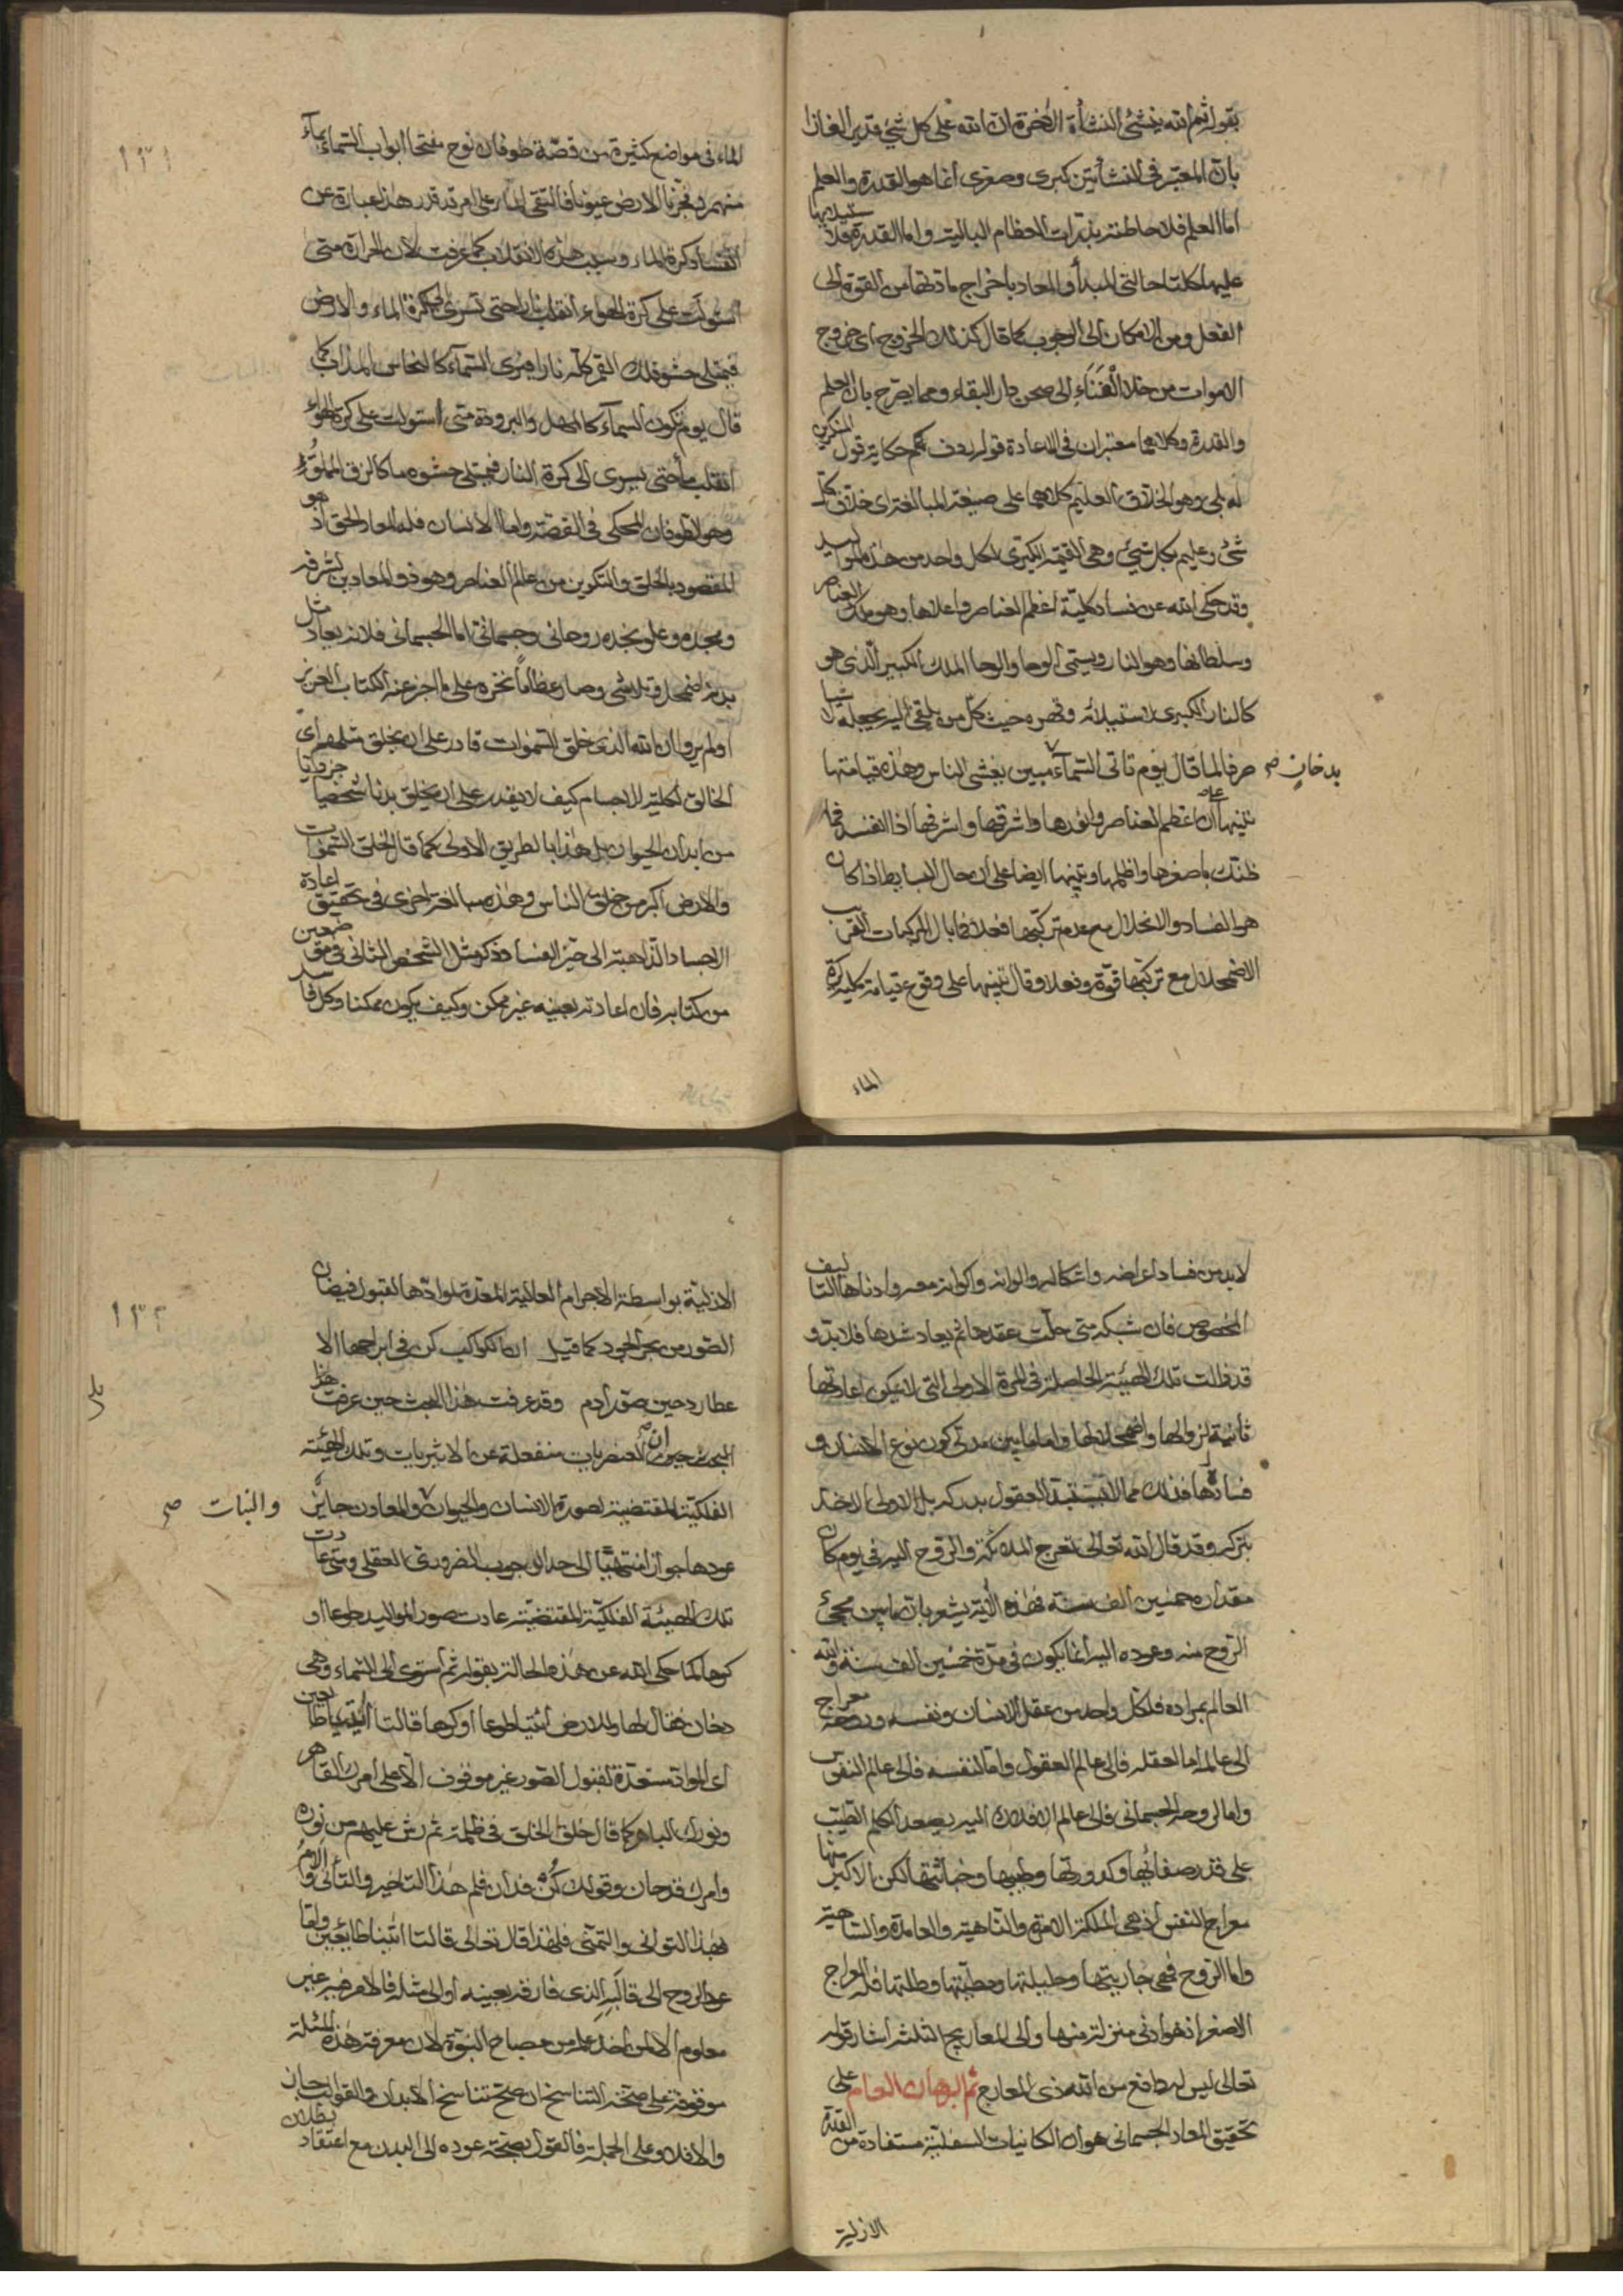 بقوله ثم الله ينشئ النشأة الاخرة ان الله على كل شئ قدير الغازا
بان المعتبر فى النشأتين كبرى وصغرى انما هو القدرة والعلم
اما العلم فلاحاطته بذرات العظام البالية واما القدرة فلاستيلائها
عليها كلتا حالتى المبدأ والمعاد باخراج مادتها من القوة الى
الفعل ومن الامكان الى الوجوب كما قال كذلك الخروج اى خروج
الاموات من خلاء الفناء الى صحن دار البقاء ومما يصرح بان العلم
والقدرة وكلاهما معتبران فى الاعادة قوله حكاية قول المنكرين
له بلى وهو الخلاق العليم كلاهما على صيغة المبالغة اى خلاق كل
شئ وعليم بكل شئ وهى القيمة الكبرى لكل واحد من هذه المواليد
وقد حكى الله عن فساد كلية اعظم العناصر واعلاها وهو ملك العناصر
وسلطانها وهو النار ويسمى الوحا والوحا الملك الكبير الذى هو
كالنار الكبرى لاستيلائه وقهره حيث كل من يلقى اليه يجعله
صرفا لما قال يوم تأتى السماء مبين يغشى الناس وهذه قيامتها
بدخان صح
تنبيها على ان اعظم العناصر وانفذها واشرقها واشرفها اذا انفسد فما
ظنك باصغرها واظلمها وتنبيها ايضا على ان حال البسايط اذا كان
هو الفساد والانحلال مع عدم تركبها فعلا فما بال المركبات القريب
الاضمحلال مع تركبها قوة وفعلا وقال تنبيها على وقوع قيامة كلية كرة
الماء
١٣١
الماء فى مواضع كثيرة من قصة طوفان نوح ففتحنا ابواب السماء بماء
منهمر وفجرنا الارض عيونا فالتقى الماء على امر قد قدر هذا عبارة عن
انفساد كرة الماء وسبب هذه الانقلاب كما عرفت لان الحرارة متى
استولت على كرة الهواء انقلب نارا حتى تسرى الى كرة الماء والارض
فيمتلى حشو فلك القمر كله نارا فيرى السماء كالنحاس المذاب كما
قال يوم تكون السماء كالمهل والبرودة متى استولت على كرة الهواء
انقلب ماء حتى يسرى الى كرة النار فيمتلى حشوه ماء كالزق المملو
وهو الطوفان المحكى فى القصة واما الانسان فله المعاد الحق اذ هو
المقصود بالخلق والتكوين من عالم العناصر وهو ذو المعادين لشرفه
ومجده وعلو نجده روحانى وجسمانى اما الجسمانى فلانه يعاد مثل
بدنه اضمحل وتلاشى وصار عظاما نخرة على ما اخبر عنه الكتاب العزيز
اولم يروا ان الله الذى خلق السموات قادر على ان يخلق مثلهم اى
الخالق لكلية الاجسام كيف لا يقدر على ان يخلق بدنا شخصيا جزويا
من ابدان الحيوان بل هذا بالطريق الاولى كما قال لخلق السموات
والارض اكبر من خلق الناس وهذه مبالغة اخرى فى تحقيق اعادة
الاجساد الذاهبة الى حيز الفساد وذكر مثل الشخص الثانى فى موضعين
من كتابه فان اعادته بعينه غير ممكن وكيف يكون ممكنا وكل فاسد
لابد من فساد اعراضه واشكاله والوانه واكوانه معه وادناها التاليف
المخصوص فان شبكة متى حلت عقدها ثم يعاد شدها فلابد و
قد فاتت تلك الهيئة الحاصلة فى المرة الاولى التى لا يمكن اعادتها
ثانية لزوالها واضمحلالها واما ما بين مدتى كون نوع الانسان و
فسادها فذلك مما لا يستبد العقول بدركه بل الاولى الاخذ
بتركه وقد قال الله تعالى تعرج الملائكة والروح اليه فى يوم كان
مقداره خمسين الف سنة فهذه الاية يشعر بان ما بين مجئ
الروح منه وعوده اليه انما يكون فى مدة خمسين الف سنة والله
العالم بمراده فلكل واحد من عقل الانسان ونفسه وروحه معراج
الى عالمه اما العقل فالى عالم العقول واما النفس فالى عالم النفوس
واما الروح الجسمانى فالى عالم الافلاك اليه يصعد الكلم الطيب
على قدر صفائها وكدورتها وطيبها وخباثتها لكن الاكبر منها
معراج النفس اذ هى الملكة الآمرة والناهية والعامدة والساهية
واما الروح فهى جاريتها وحليلتها ومطيتها وطلتها فله المعراج
الاصغر اذ هو ادنى منزلة منها والى المعاريج الثلثة اشار قوله
تعالى ليس له دافع من الله ذى المعارج ثم البرهان العام على
تحقيق المعاد الجسمانى هو ان الكائنات السفلية مستفادة من
الازلية
١٣٢
الازلية بواسطة الاجرام العالية المعدة لموادها لقبول فيضان
الصور من بحر الجود كما قيل ان الكواكب كن فى ابراجها الا
عطارد حين صور آدم وقد عرفت هذا البحث حين عرفت هذا
البحث حين ان العنصريات منفعلة عن الاثيريات وتلك الهيئة
الفلكية المقتضية لصورة الانسان والحيوان والمعادن جايز
والنبات صح
عودها جوازا منتهيا الى حد الوجوب الضرورى العقلى ومتى عادت
تلك الهيئة الفلكية المقتضية عادت صور المواليد طوعا او
كرها لما حكى الله عن هذه الحالة بقوله ثم استوى الى السماء وهى
دخان فقال لها وللارض ائتيا طوعا او كرها قالتا اتينا طائعين
اى المواد مستعدة لقبول الصور غير موقوف الا على امرك القاهر
ونورك الباهر كما قال خلق الخلق فى ظلمة ثم رش عليهم من نوره
وامرك قد حان وقولك كن قد آن فلم هذا التاخير والتأنى
فهذا التوانى والتمنى فلهذا قال تعالى قالتا اتينا طائعين واما
عود الروح الى قالبه الذى فارقه بعينه او الى مثله فالامر فيه غير
معلوم الا لمن اخذ علمه من مصباح النبوة لان معرفة هذه المسئلة
موقوفة على صحة التناسخ ان صح تناسخ الابدان والقوالب جاز
والا فلا وعلى الجملة فالقول بصحة عوده الى البدن مع اعتقاد بطلان